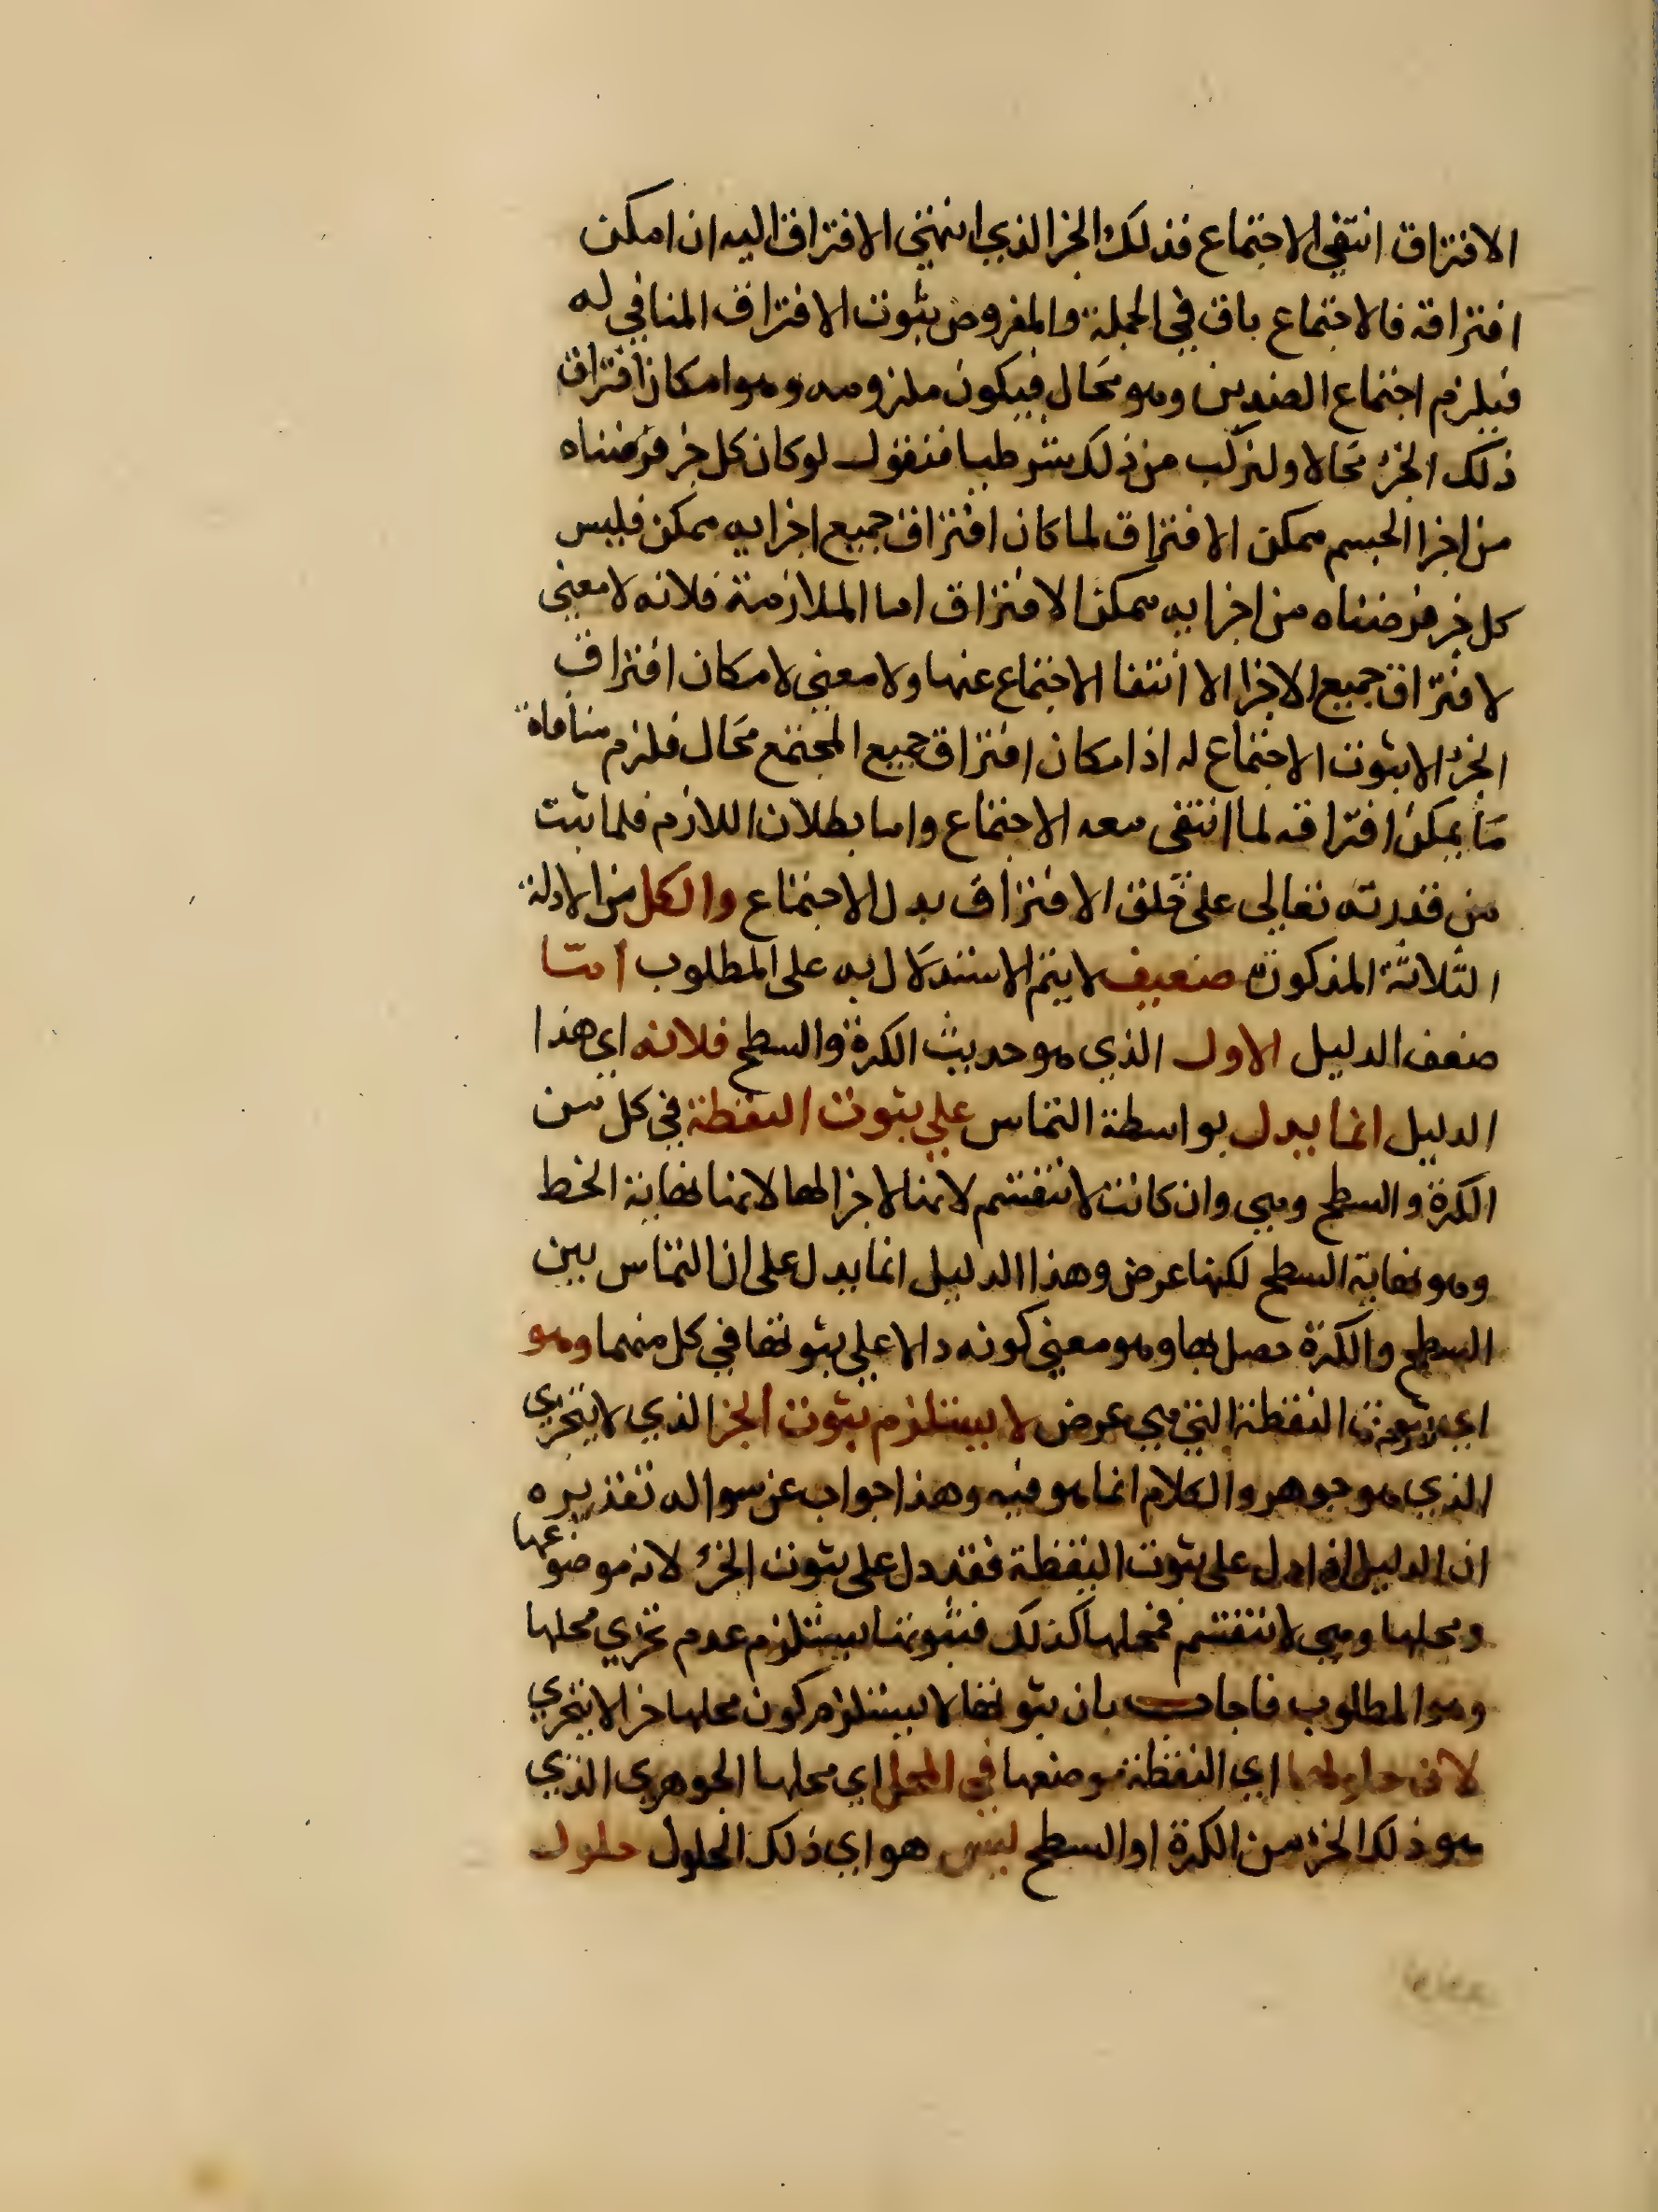 الافتراق انتفي الاجتماع فذلك الجز الذي انتهي الافتراق اليه ان امكن
افتراقه فالاجتماع باق في الجملة والمفروض ثبوت الافتراق المنافي له
فيلزم اجتماع الضدين وهو محال فيكون ملزومه وهو امكان افتراق
ذلك الجزء محالا ولنركب من ذلك شرطيا فنقول لو كان كل جز فرضناه
من اجزا الجسم ممكن الافتراق لما كان افتراق جميع اجزايه ممكن فليس
كل جز فرضناه من اجزايه ممكن الافتراق اما الملازمة فلانه لا معني
لافتراق جميع الاجزا الا انتفا الاجتماع عنها ولا معني لامكان افتراق
الجزء الا ثبوت الاجتماع له اذ امكان افتراق جميع المجتمع محال فلزم منافاة
ما يمكن افتراقه لما انتفى معه الاجتماع واما بطلان اللازم فلما ثبت
من قدرته تعالى على خلق الافتراق بدل الاجتماع والكل من الادلة
الثلاثة المذكورة ضعيف لا يتم الاستدلال به على المطلوب اما
ضعف الدليل الاول الذي هو حديث الكرة والسطح فلانه اي هذا
الدليل انما يدل بواسطة التماس علي ثبوت النقطة في كل من
الكرة والسطح وهي وان كانت لا تنقسم لانها لا جزا لها لانها نهاية الخط
وهو نهاية السطح لكنها عرض وهذا الدليل انما يدل على ان التماس بين
السطح والكرة حصل بها وهو معني كونه دالا علي ثبوتها في كل منهما وهو
اي ثبوت النقطة التي هي عرض لا يستلزم ثبوت الجز الذي لا يتجزي
الذي هو جوهر والكلام انما هو فيه وهذا جواب عن سوال تقديره
ان الدليل اذا دل على ثبوت النقطة فقد دل على ثبوت الجزء لانه موضوعها
ومحلها وهي لا تنقسم فمحلها كذلك فثبوتها يستلزم عدم تجزي محلها
وهو المطلوب فاجاب بان ثبوتها لا يستلزم كون محلها جزا لا يتجزي
لان حلولها اي النقطة موضعها في المحل اي محلها الجوهري الذي
هو ذلك الجزء من الكرة او السطح ليس هو اي ذلك الحلول حلول